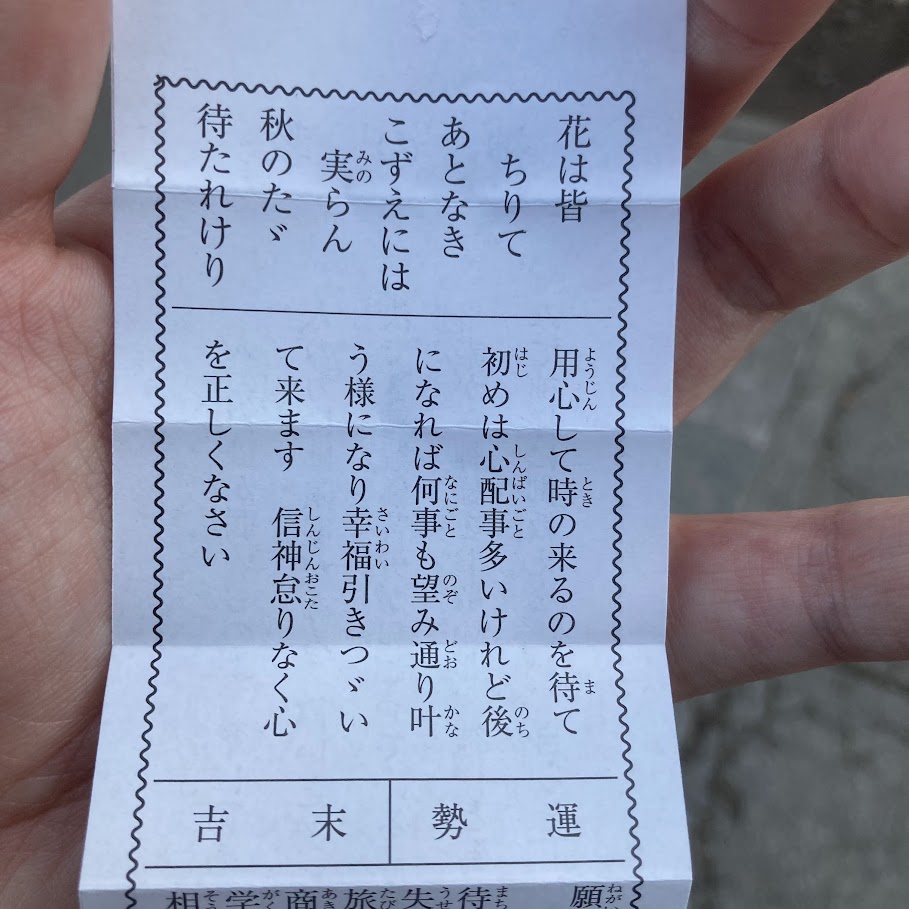 花は皆
ちりて
あとなき
こずえには
実らん
秋のたゞ
待たれけり
用心して時の来るのを待て
初めは心配事多いけれど後
になれば何事も望み通り叶
う様になり幸福引きつゞい
て来ます　信神怠りなく心
を正しくなさい
運勢
末吉
願
待
失
旅
商
学
相